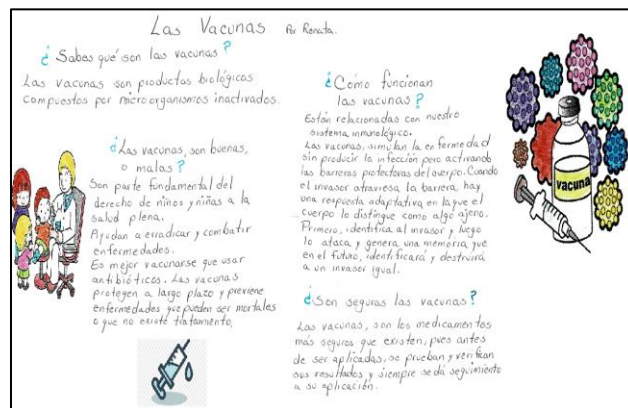 Las Vacunas Por Renata.
¿Sabes qué son las vacunas?
Las vacunas son productos biológicos
compuestos por microorganismos inactivados.
¿Las vacunas, son buenas,
o malas?
Son parte fundamental del
derecho de niños y niñas a la
salud plena.
Ayudan a erradicar y combatir
enfermedades.
Es mejor vacunarse que usar
antibióticos. Las vacunas
protegen a largo plazo y previene
enfermedades que pueden ser mortales
o que no existe tratamiento.
¿Cómo funcionan
las vacunas?
Están relacionadas con nuestro
sistema inmunológico.
Las vacunas, simulan la enfermedad
sin producir la infección pero activando
las barreras protectoras del cuerpo. Cuando
el invasor atraviesa la barrera, hay
una respuesta adaptativa en la que el
cuerpo lo distingue como algo ajeno.
Primero, identifica al invasor y luego
lo ataca y genera una memoria, que
en el futuro, identificará y destruirá
a un invasor igual.
¿Son seguras las vacunas?
Las vacunas, son los medicamentos
más seguros que existen, pues antes
de ser aplicadas, se prueban y verifican
sus resultados y siempre se dá seguimiento
a su aplicación.
vacuna